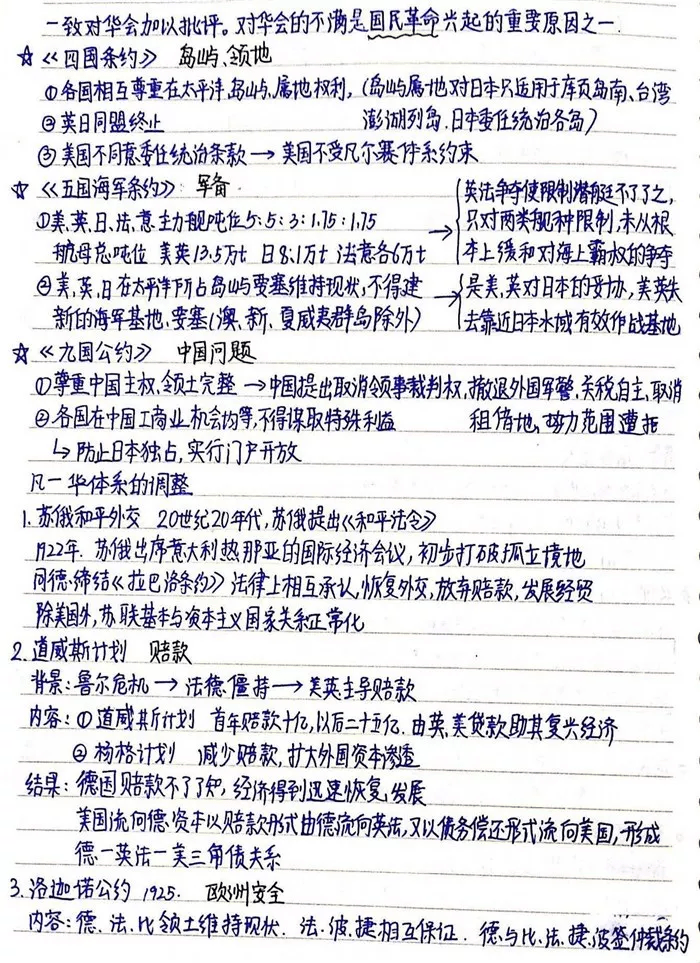 一致对华会加以批评。对华会的不满是国民革命兴起的重要原因之一
☆《四国条约》 岛屿、领地
①各国相互尊重在太平洋岛屿、属地权利,(岛屿属地对日本只适用于库页岛南、台湾
②英日同盟终止 澎湖列岛、日本委任统治各岛)
③美国不同意委任统治条款→美国不受凡尔赛体系约束
☆《五国海军条约》 军备
①美、英、日、法、意主力舰吨位5:5:3:1.75:1.75
航母总吨位 美英13.5万t 日8.1万t 法意各6万t
→{英法争夺使限制潜艇不了了之,
只对两类舰种限制,未从根
本上缓和对海上霸权的争夺
②美、英、日在太平洋所占岛屿要塞维持现状,不得建
新的海军基地、要塞(澳、新、夏威夷群岛除外)
→{是美、英对日本的妥协,美英失
去靠近日本水域有效作战基地
☆《九国公约》 中国问题
①尊重中国主权、领土完整→中国提出取消领事裁判权,撤退外国军警、关税自主、取消
②各国在中国工商业机会均等,不得谋取特殊利益 租借地,势力范围遭拒
↳防止日本独占,实行门户开放
凡—华体系的调整
1.苏俄和平外交 20世纪20年代,苏俄提出《和平法令》
1922年.苏俄出席意大利热那亚的国际经济会议,初步打破孤立境地
同德缔结《拉巴洛条约》法律上相互承认,恢复外交,放弃赔款,发展经贸
除美国外,苏联基本与资本主义国家关系正常化
2.道威斯计划 赔款
背景:鲁尔危机→法德僵持→美英主导赔款
内容:①道威斯计划 首年赔款十亿,以后二十五亿.由英、美贷款助其复兴经济
②杨格计划 减少赔款,扩大外国资本渗透
结果:德国赔款不了了知,经济得到迅速恢复、发展
美国流向德资本以赔款形式由德流向英法,又以债务偿还形式流向美国,形成
德—英法—美三角债关系
3.洛迦诺公约 1925. 欧洲安全
内容:德、法、比领土维持现状.法、波、捷相互保证.德与比、法、捷、波签仲裁条约